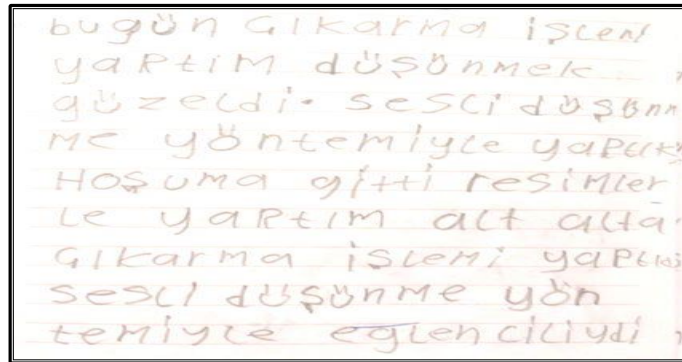 bugün Çıkarma işlemi
yaptım düşünmek
güzeldi. sesli düşün
me yöntemiyle yaptık
Hoşuma gitti resimler
le yaptım alt alta
Çıkarma işlemi yaptık
sesli düşünme yön
temiyle eğlenciliydi